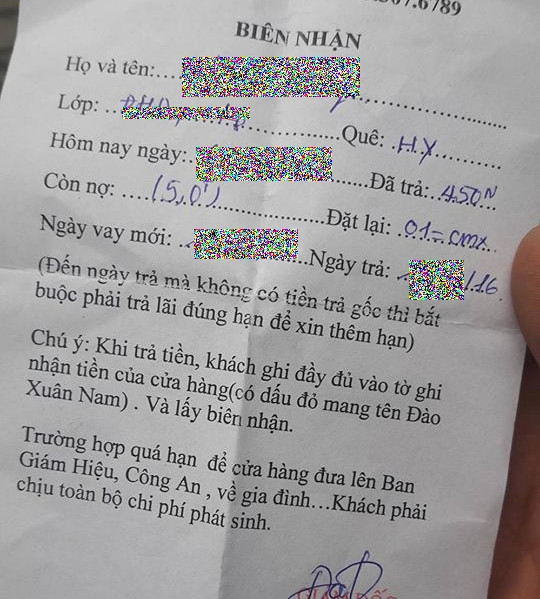 .6789
BIÊN NHẬN
Họ và tên:
Lớp: Quê: HY
Hôm nay ngày: Đã trả: 450N
Còn nợ: (5,0t) Đặt lại: 01 = CMX
Ngày vay mới: Ngày trả: /16
(Đến ngày trả mà không có tiền trả gốc thì bắt
buộc phải trả lãi đúng hạn để xin thêm hạn)
Chú ý: Khi trả tiền, khách ghi đầy đủ vào tờ ghi
nhận tiền của cửa hàng(có dấu đỏ mang tên Đào
Xuân Nam) . Và lấy biên nhận.
Trường hợp quá hạn để cửa hàng đưa lên Ban
Giám Hiệu, Công An , về gia đình…Khách phải
chịu toàn bộ chi phí phát sinh.